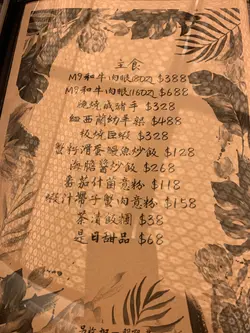 主食
M9和牛肉眼(8OZ) $388
M9和牛肉眼(16OZ) $688
燒焗咸豬手 $328
紐西蘭幼羊架 $488
板燒巨蝦 $328
鰻魚炒飯 $128
海膽醬炒飯 $268
蕃茄什菌意粉 $118
蝦汁帶子蟹肉意粉 $158
茶漬飯 $38
是日甜品 $68